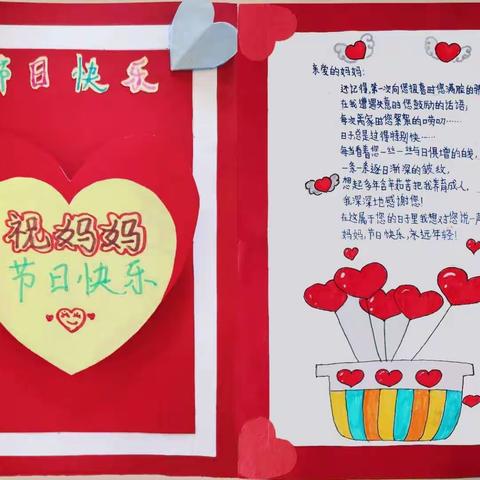 节日快乐
祝妈妈
节日快乐
亲爱的妈妈：
还记得,第一次向您报喜时您满脸的
在我遭遇失意时您鼓励的话语;
每次离家时您絮絮的唠叨……
日子总是过得特别快……
每当看着您一丝一丝与日俱增的白发,
一条一条逐日渐深的皱纹,
想起多年含辛茹苦把我养育成人,
我深深地感谢您!
在这属于您的日子里我想对您说一声
妈妈,节日快乐,永远年轻!